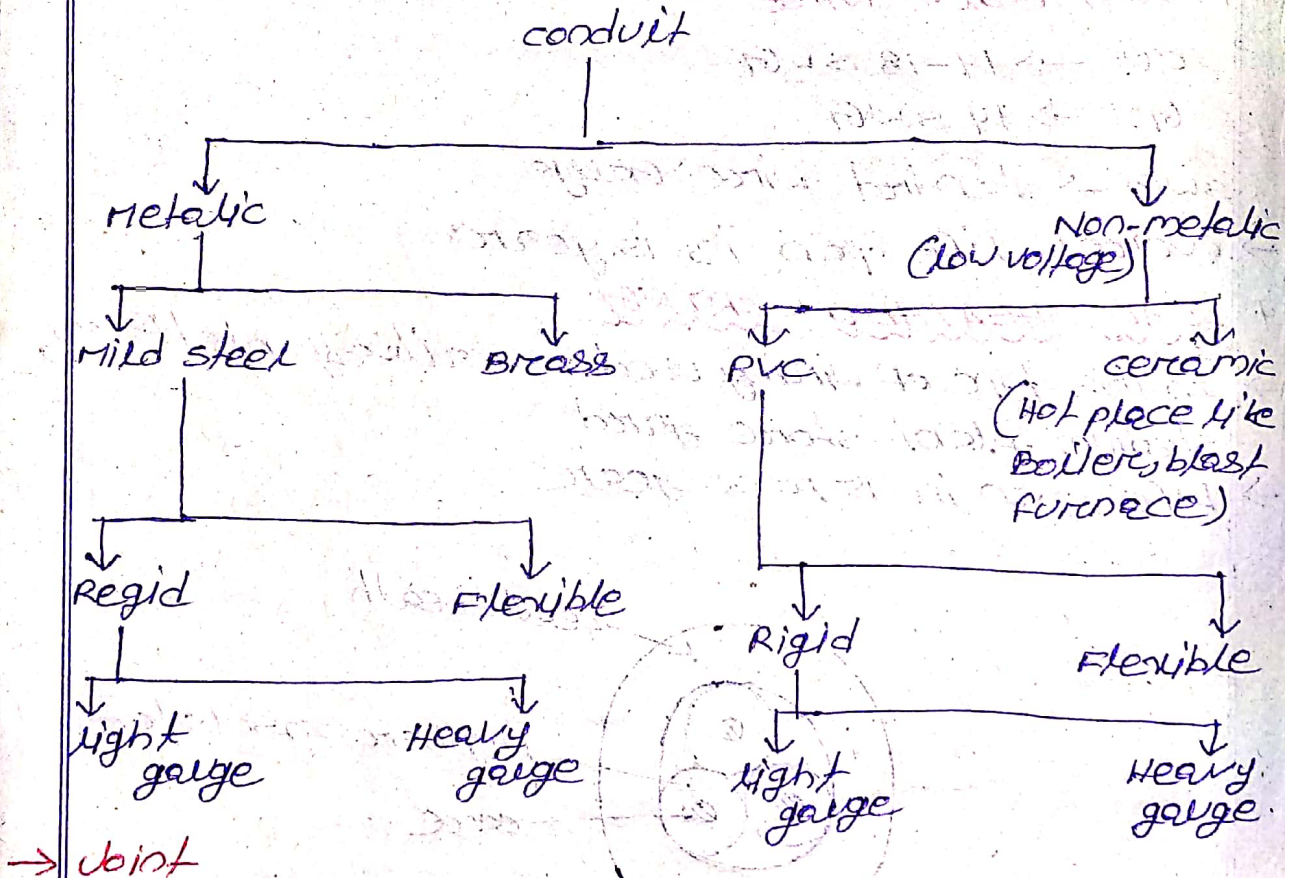 conduit
Metalic
Non-metalic
(low voltage)
Mild steel
Brass
PVC
ceramic
(Hot place like
Boiler, blast
furnace)
Regid
Flexible
Rigid
Flexible
light
gauge
Heavy
gauge
light
gauge
Heavy
gauge.
→ Joint